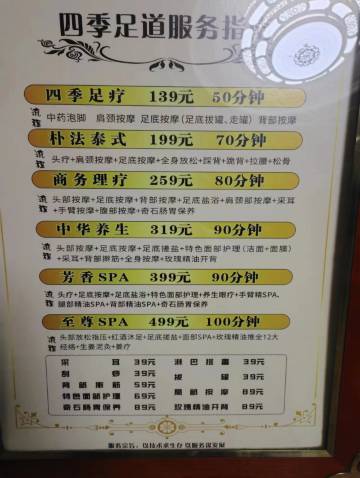 四季足道服务指
四季足疗 139元 50分钟
流程 中药泡脚 肩颈按摩 足底按摩(足底拔罐、走罐) 背部按摩
朴法泰式 199元 70分钟
流程 头疗+肩颈按摩+足底按摩+全身放松+踩背+跪背+拉腰+松骨
商务理疗 259元 80分钟
流程 头部按摩+足底按摩+背部按摩+足底盐浴+肩颈部按摩+采耳
+手臂按摩+腹部按摩+奇石肠胃保养
中华养生 319元 90分钟
流程 头部按摩+足底按摩+足底搓盐+特色面部护理(洁面+面膜)
+采耳+背部擀筋+全身按摩+玫瑰精油开背
芳香SPA 399元 90分钟
流程 头疗+足底按摩+足底盐浴+特色面部护理+养生眼疗+手臂精SPA、
腿部精SPA+背部精SPA+奇石肠胃保养
至尊SPA 499元 100分钟
流程 头部放松指压+红酒沐足+足底搓盐+面部SPA+玫瑰精油推全12大
经络+生姜泥灸+姜疗
采耳 39元 淋巴排毒 59元
刮痧 39元 拔罐 39元
背部擀筋 59元 腿部按摩 89元
特色面部护理 69元
奇石肠胃保养 89元 玫瑰精油开背 89元
服务宗旨：以技术求生存 以服务谋发展